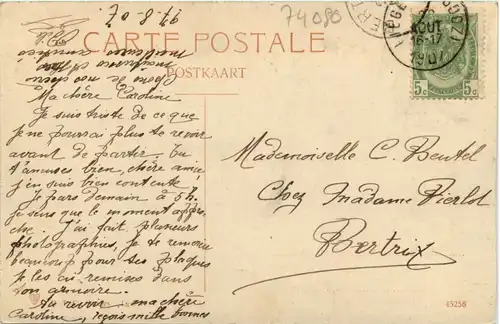 27-8-07
74080
CARTE POSTALE
POSTKAART
LIEGE
AOUT
16-17
1907
5c 5c
Ma chère Caroline
Je suis triste de ce que
je ne pourrai plus te revoir
avant de partir. Tu
t'amuses bien, chère amie
j'en suis bien contente.
Je pars demain à 5h.
Je sens que le moment appro
che. J'ai fait plusieurs
photographies, je te remercie
beaucoup pour ses plaques
je les ai remises dans
son armoire.
Au revoir ma chère
Caroline, reçois mille bonnes
Mademoiselle C. Beutel
Chez Madame Pierlot
Bertrix
45258